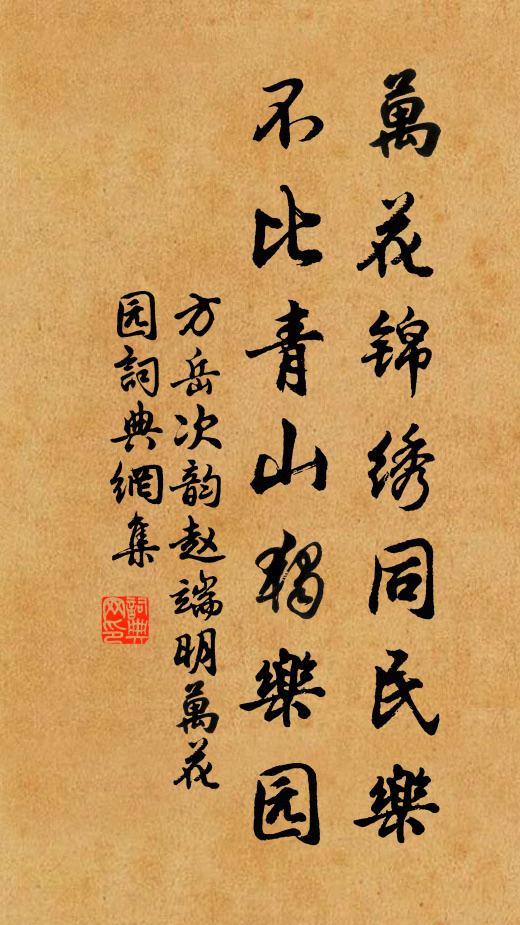 萬花锦绣同民樂
不比青山獨樂园
方岳次韵赵端明萬花
园詞典網集
詞典網印